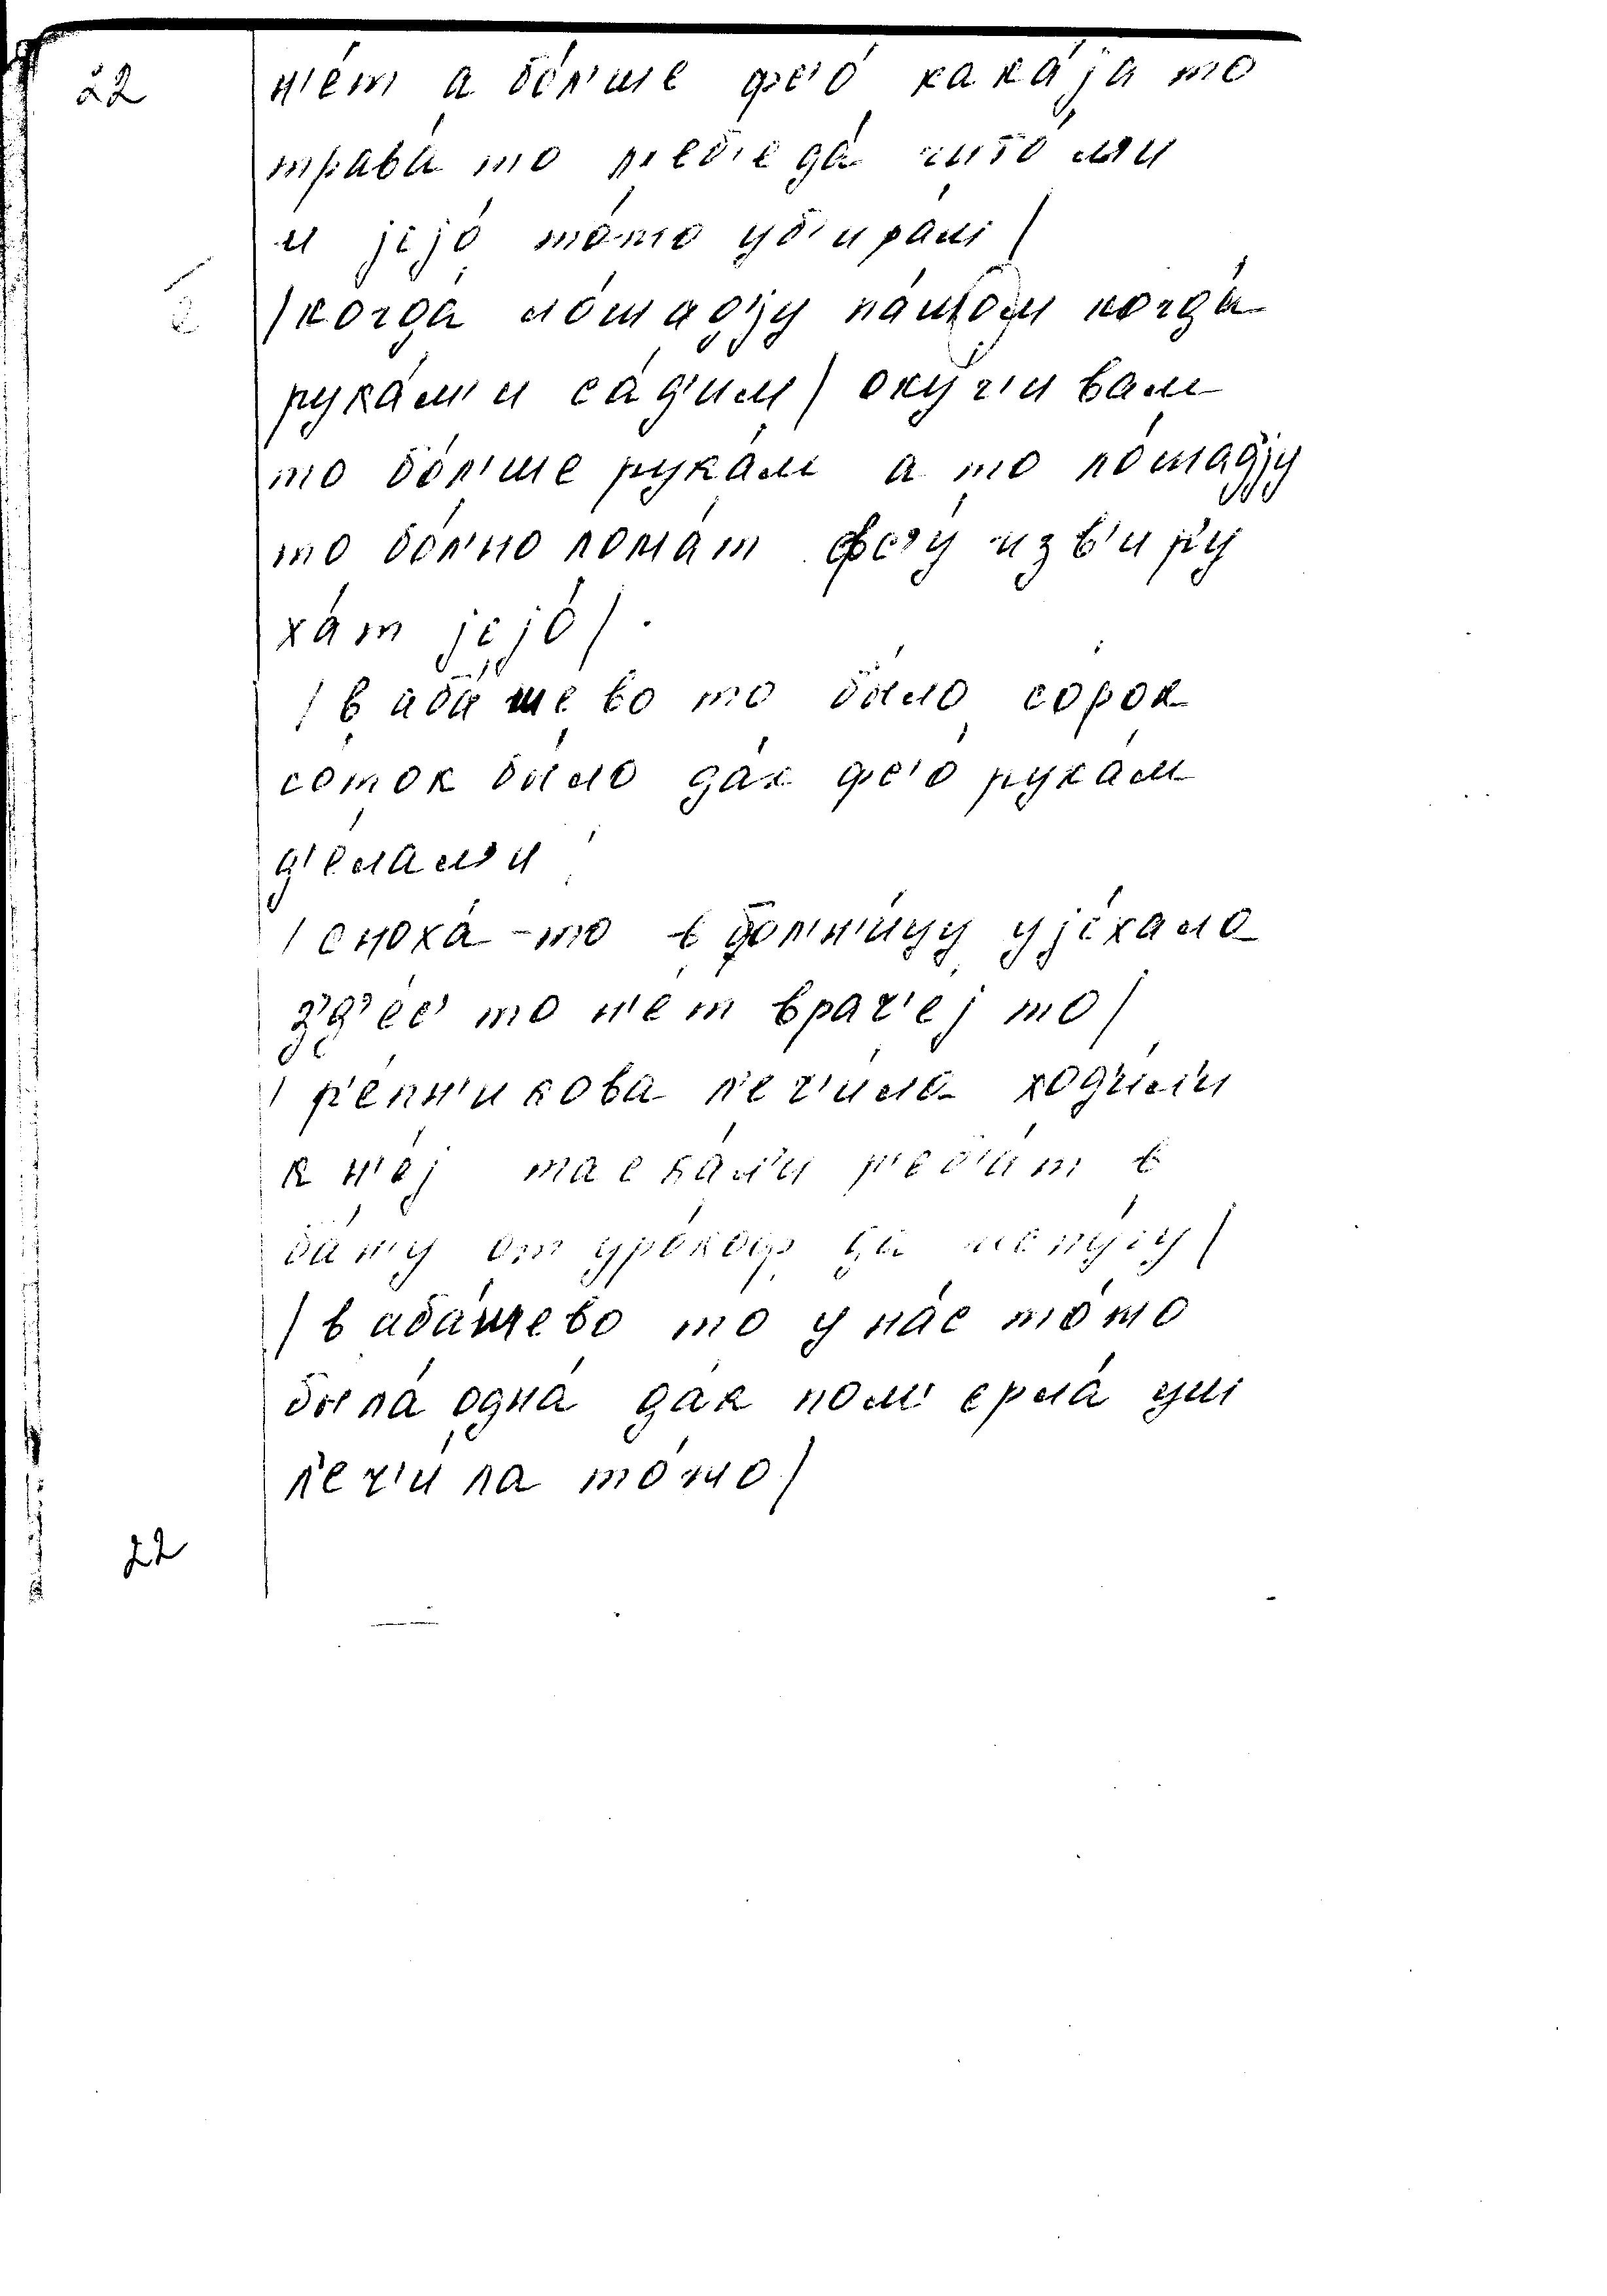 22
н'е́т а бо́л'ше фс'о́ кака́jа то
трава́ то л'еб'еда́ чито́ л'и
и jejо́ то́то уб'ира́л'и /
/ когда́ ло́шадjу па́шом когда́
рука́м'и са́д'им / оку́ч'ивам
то бо́л'ше рука́м а то ло́шадjу
то бо́л'но лома́т фс'у́ изв'ир'у
ха́т jejо́ /
/ в аба́шево то бы́ло со́рок
со́ток бы́ло да́к фс'о́ рука́м
д'е́лал'и
/ сноха́-то в бол'н'и́цу уjе́хала
з'д'е́с' то н'е́т врач'е́j то /
/ р'е́пн'икова л'еч'и́ла ход'и́л'и
к н'е́j таска́л'и р'еб'а́т в
ба́н'у от уро́коф да испу́гу /
/ в аба́шево то у на́с то́то
была́ одна́ да́к пом'ерла́ уш
л'еч'и́ла то́то /
22